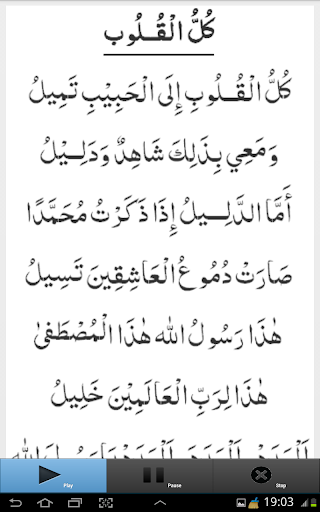 كُلُّ الْقُلُوب
كُلُّ الْقُلُوبِ إِلَى الْحَبِيْبِ تَمِيلُ
وَمَعِي بِذَلِكَ شَاهِدٌ وَدَلِيْلُ
أَمَّا الدَّلِيلُ إِذَا ذَكَرْتُ مُحَمَّدًا
صَارَتْ دُمُوعُ الْعَاشِقِينَ تَسِيلُ
هٰذَا رَسُولُ الله هٰذَا الْمُصْطَفىٰ
هٰذَا لِرَبِّ الْعَالَمِيْنَ خَلِيلُ
Play
Pause
Stop
19:03